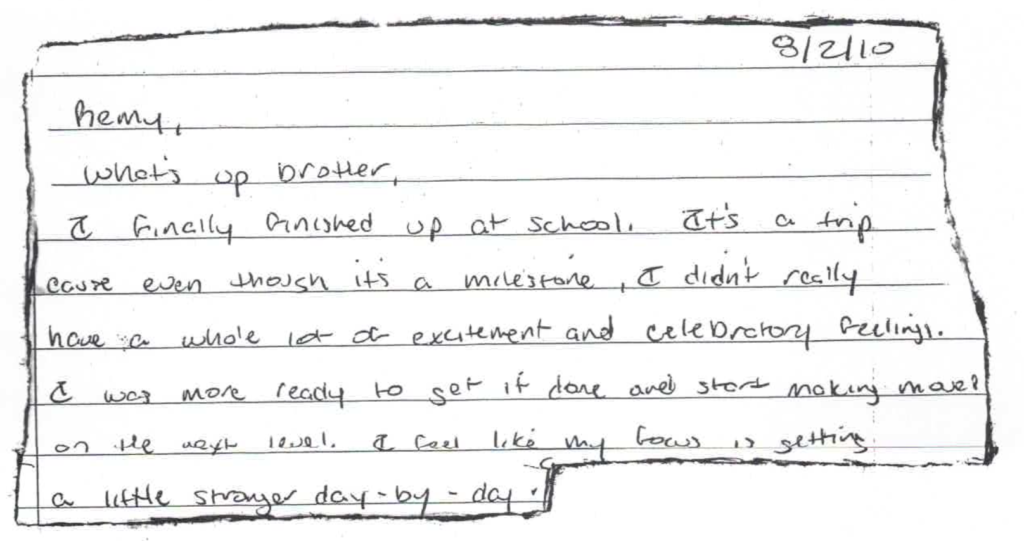 8/2/10
Remy,
What's up brother,
I finally finished up at school. It's a trip
cause even though it's a milestone, I didn't really
have a whole lot of excitement and celebratory feelings.
I was more ready to get it done and start making moves
on the next level. I feel like my focus is getting
a little stronger day-by-day.